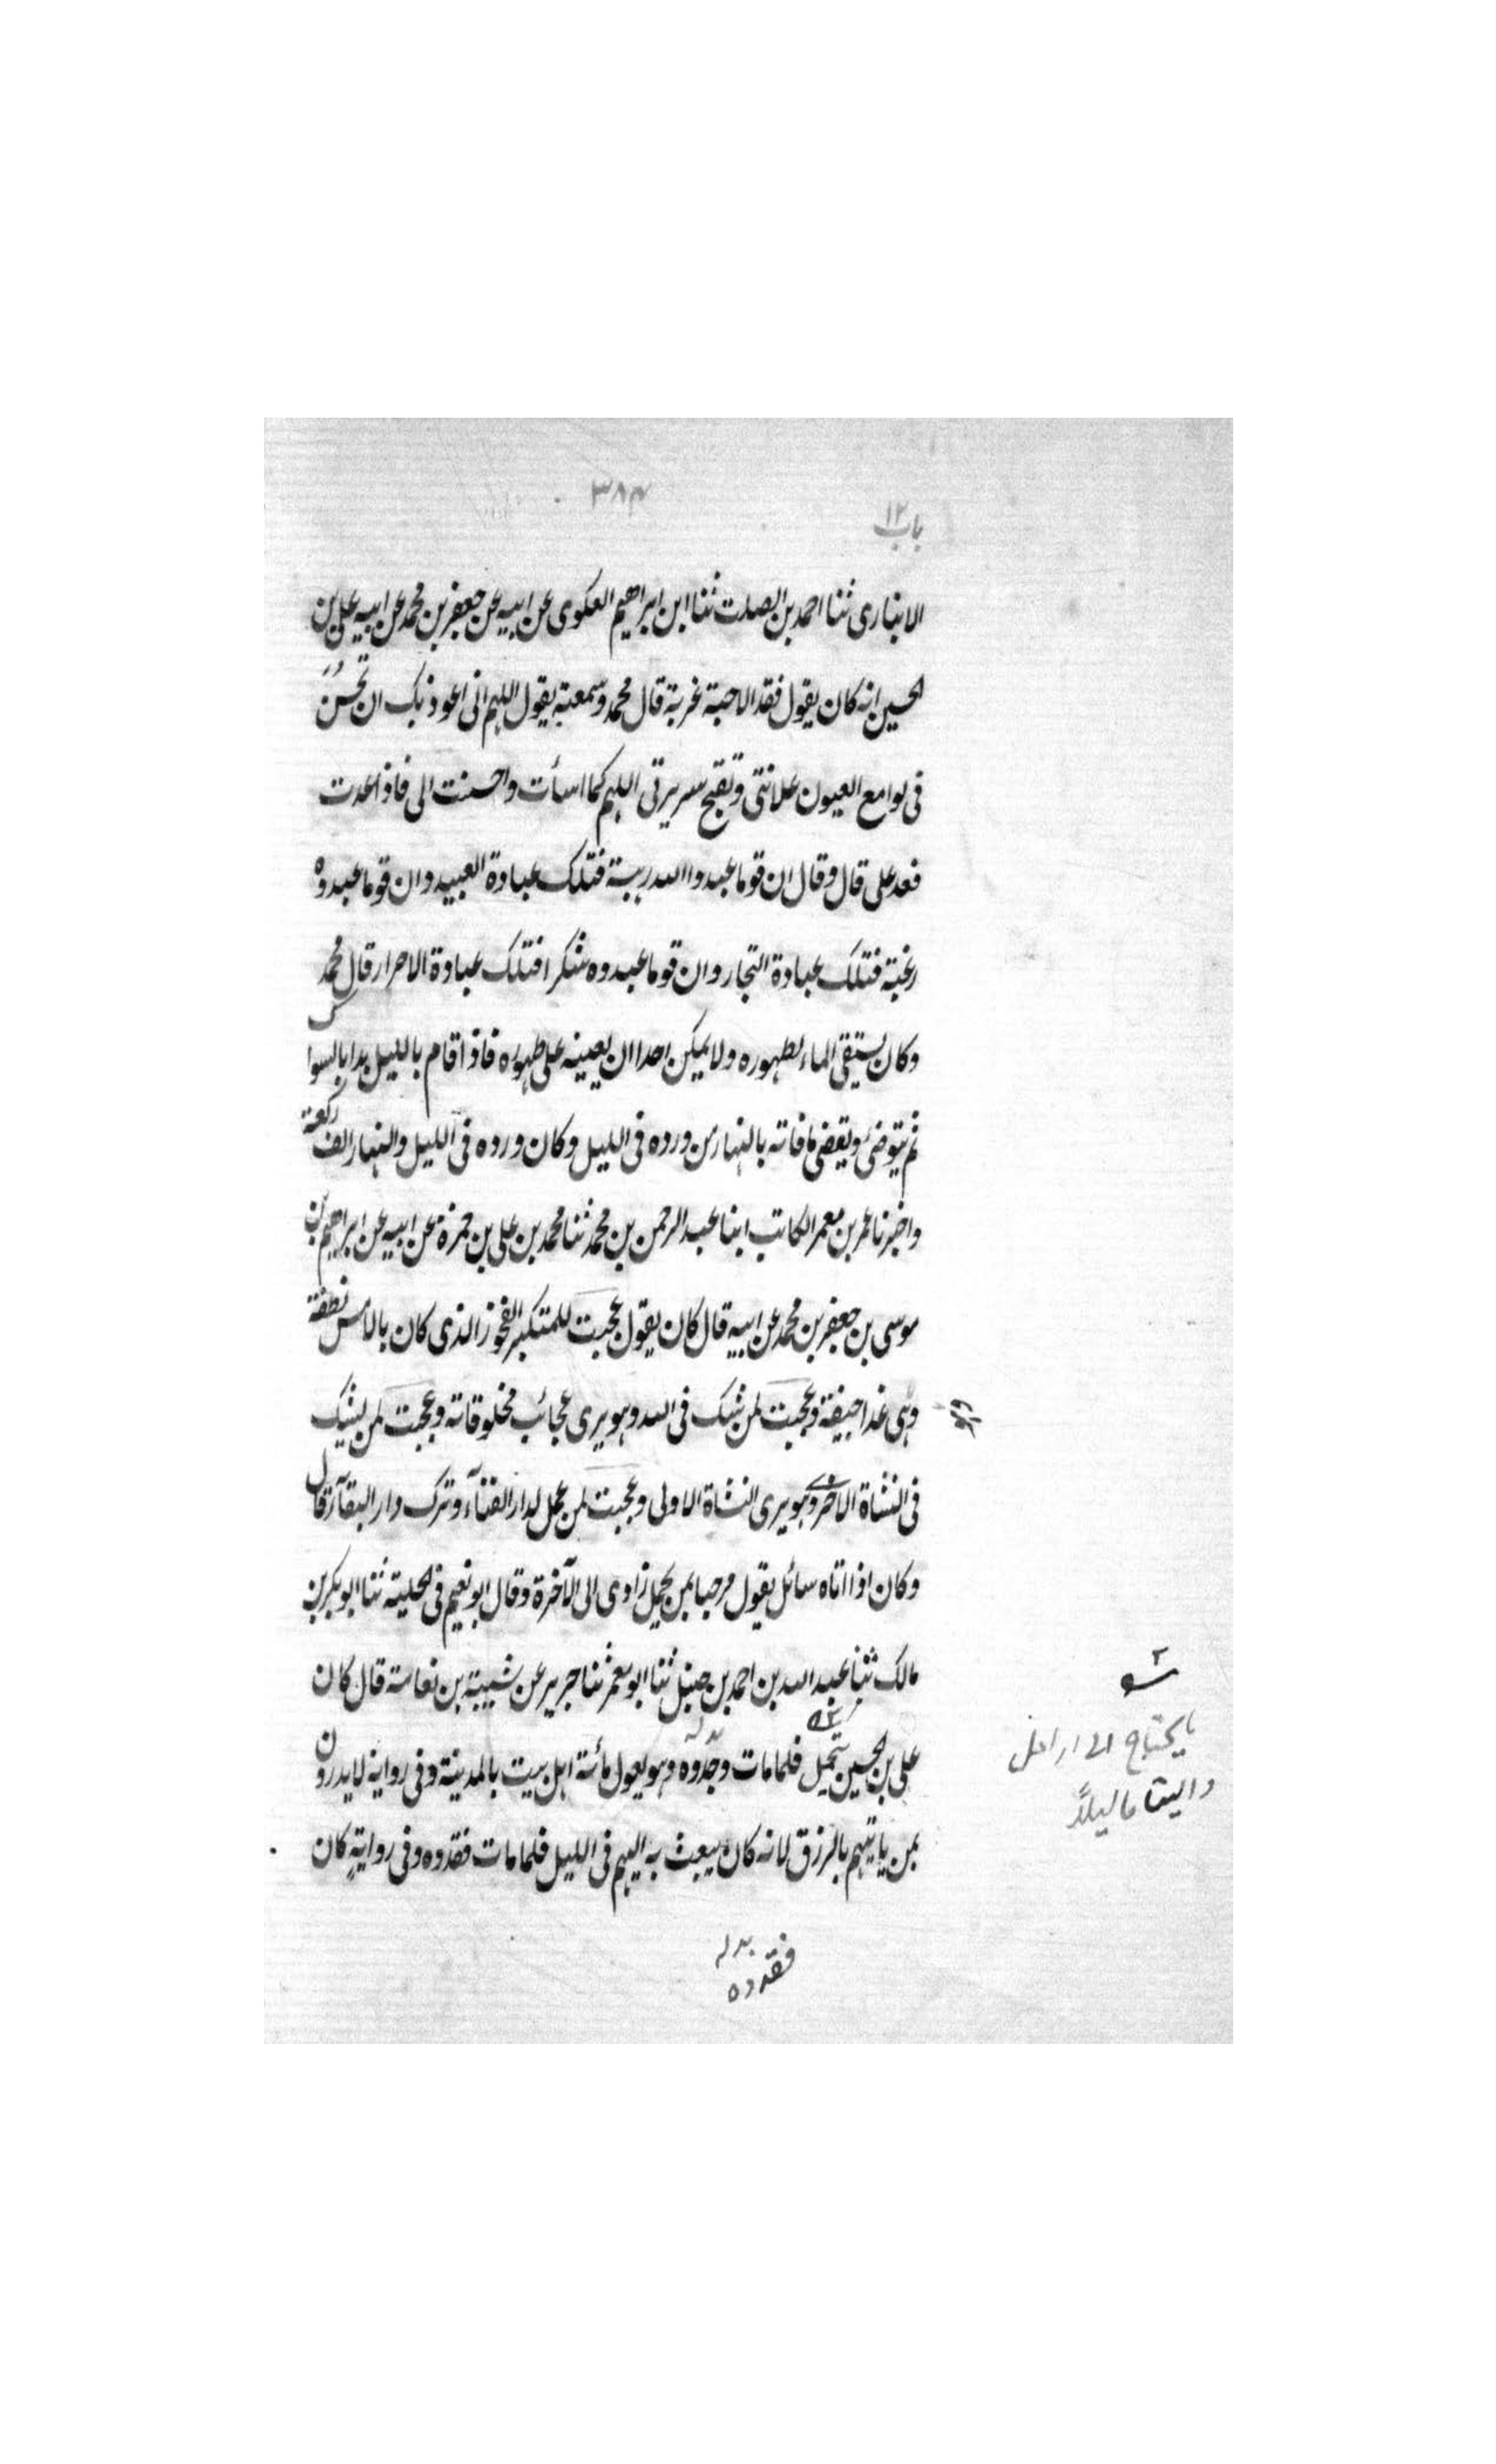 ٣٨٣
باب ١٢
الانبارى ثنا احمد بن الصلت ثنا ابن ابراهيم العكوى عن ابيه عن جعفر بن محمد عن ابيه على بن
الحسين انه كان يقول فقد الاحبة غربة قال محمد وسمعته يقول اللهم انى اعوذ بك ان تحسن
فى لوامع العيون علانتى وتقبح سريرتى اللهم كما اسأت واحسنت الى فاذا عدت
فعد على قال وقال ان قوما عبدوا الله رهبة فتلك عبادة العبيد وان قوما عبدوه
رغبة فتلك عبادة التجار وان قوما عبدوه شكرا فتلك عبادة الاحرار قال محمد
وكان يستقى الماء لطهوره ولا يمكن احدا ان يعينه على طهوره فاذا قام بالليل بدا بالسواك
ثم يتوضى ويقضى ما فاته بالنهار من ورده فى الليل وكان ورده فى الليل والنهار الف ركعة
واخبرنا عمر بن معمر الكاتب ابنا عبد الرحمن بن محمد ثنا محمد بن على بن حمزة عن ابيه عن ابراهيم بن
موسى بن جعفر بن محمد عن ابيه قال كان يقول عجبت للمتكبر الفخور الذى كان بالامس نطفة
وهى غدا جيفة وعجبت لمن شك فى الله وهو يرى عجائب مخلوقاته وعجبت لمن يشك
فى النشاة الاخرى وهو يرى النشاة الاولى وعجبت لمن عمل لدار الفنآء وترك دار البقآء قال
وكان اذا اتاه سائل يقول مرحبا بمن يحمل زادى الى الآخرة وقال ابو نعيم فى الحلية ثنا ابو بكر بن
مالك ثنا عبد الله بن احمد بن حنبل ثنا ابو معمر ثنا جرير عن شيبة بن نعامة قال كان
على بن الحسين يتحمل فلما مات وجدوه وهو يعول مأئة اهل بيت بالمدينة وفى رواية لا يدرون
بمن ياتيهم بالرزق لانه كان يبعث به اليهم فى الليل فلما مات فقدوه وفى رواية كان
ما يحتاج اليه ارامل
واليتاما ليلاً
بدله
فقدوه